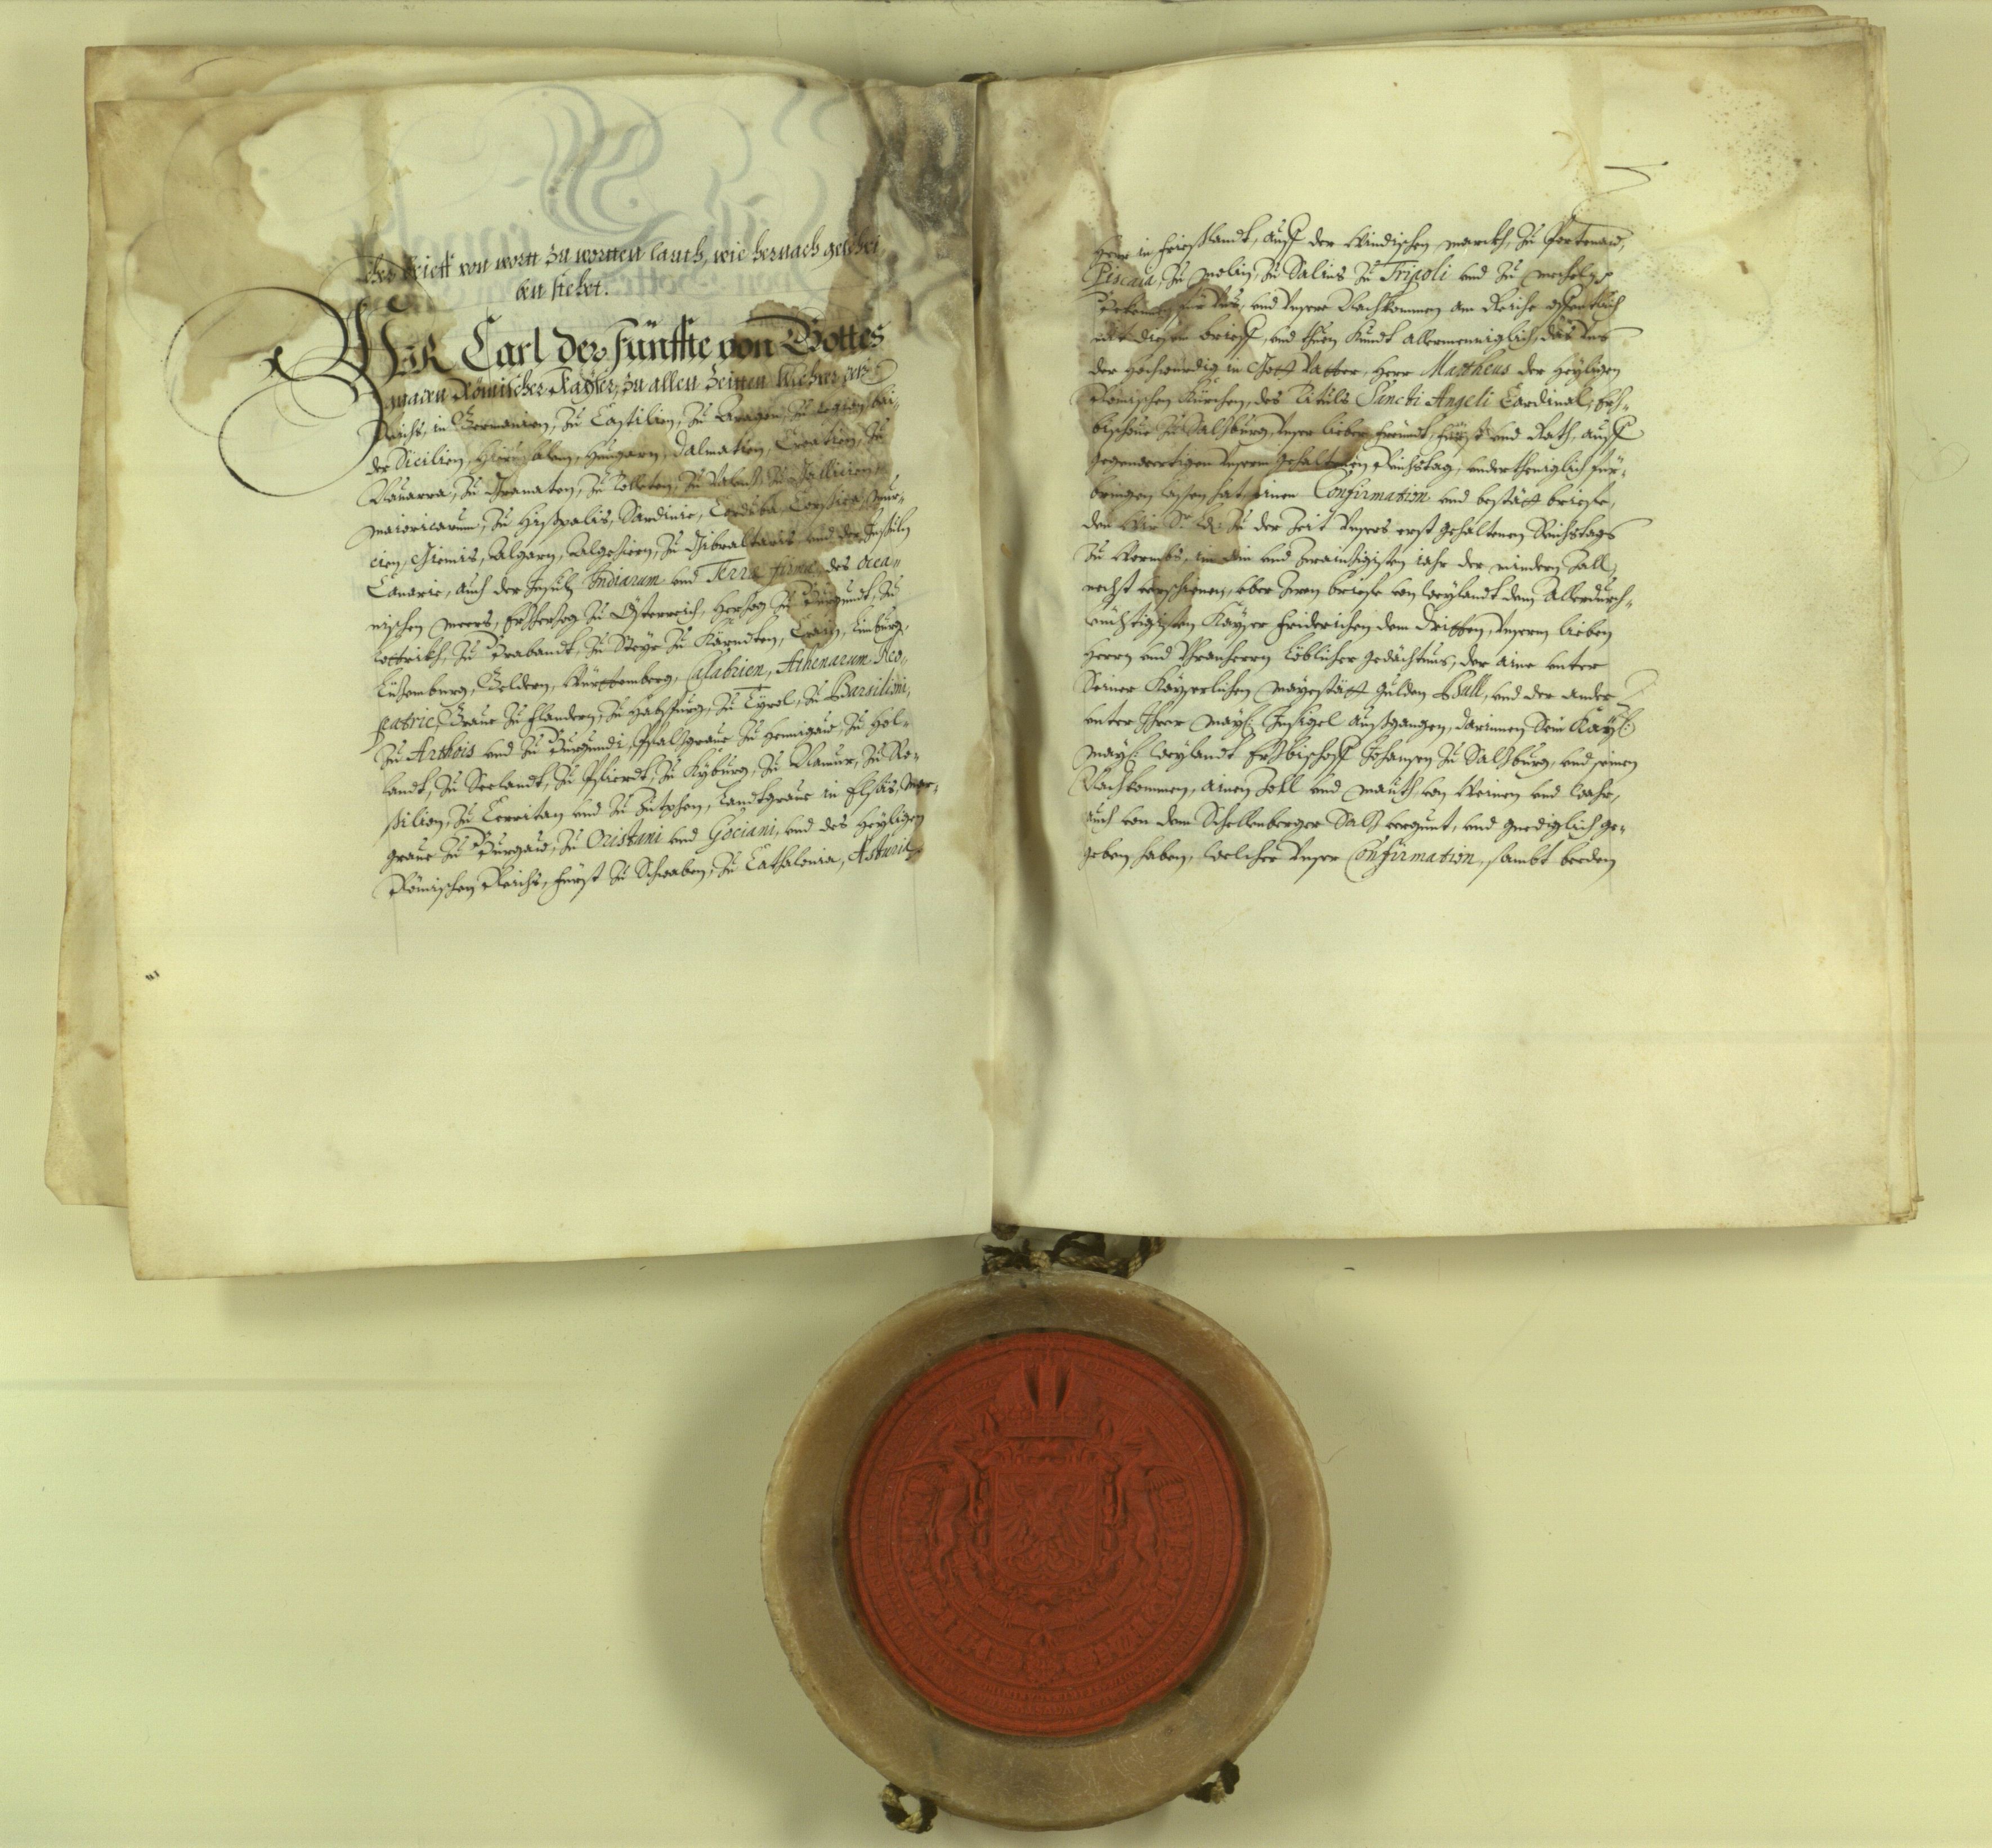 cher brieff von wortt zu wortten lauth, wie hernach geschri-
ben stehet.
Wir Carl der Fünffte von Gottes
gnaden Römischer Kayser, zu allen Zeitten Mehrer des
Reichs, in Germanien, zu Castilien, zu Aragon, zu Legion, bai-
der Sicilien, Hierusalem, Hungarn, Dalmatien, Croatien, zu
Nauarra, zu Granaten, zu Tolleten, zu Valentz, zu Gallicien,
Maioricarum, zu Hispalis, Sardinie, Corduba, Corsica, Mur-
cien, Giemis, Algarn, Algeziern, zu Gibraltaris und der Insuln
Canarie, auch der Insuln Indiarum und Terre firme, des Ocea-
nischen Meers, Ertzhertzog zu Österreich, Hertzog zu Burgundt, zu
Lottrikh, zu Brabandt, zu Steyr, zu Kärndten, Crain, Limburg,
Lützemburg, Geldern, Württemberg, Calabrien, Athenarum, Neo-
patrie, Graue zu Flandern, zu Habspurg, zu Tyrol, zu Barsiloni,
zu Arthois und zu Burgundi, Pfaltzgraue zu Hennigaw, zu Hol-
landt, zu Seelandt, zu Pfierdt, zu Kyburg, zu Namur, zu Ro-
ssilion, zu Cerritan und zu Zutphen, Landtgraue in Elsäs, Mar-
graue zu Burgaw, zu Oristani und Gociani, und des Heyligen
Römischen Reichs, Fürst zu Schwaben, zu Cathalonia, Asturia
Herr in Frießlandt, auff der Windischen Marckh, zu Portenaw,
Biscaia, zu Molin, zu Salins zu Tripoli und zu Mecheln
Bekennen für Uns, und Unsere Nachkommen am Reiche offentlich
mit diesem brieff, und thuen kundt allermenniglich, das Uns
der Hochwürdig in Gott Vatter, Herr Mattheus der Heyligen
Römischen Kürchen, des Tituls Sancti Angeli Cardinal, Ertz-
bischoue zu Saltzburg, Unser lieber Freundt, Fürst und Rath, auff
gegenwertigen Unserm gehaltenen Reichstag, underthenigklich für-
bringen lassen hat, einen Confirmation und bestätt brieffe,
den Wir Sr. Ld. zu der Zeit Unsers erst gehaltenen Reichstags
zu Wormbs, im ain und zwainzigisten iahr der mindern Zall,
nechst verschienen, uber zwen brieffe von weylandt dem Allerdurch-
leuchtigisten Kayser Friderichen dem Dritten, Unserm lieben
Herrn und Uhranherrn löblicher gedächtnus, der aine unter
Seiner Kayserlichen Mayestätt gulden Bull, und der ander
unter Ihrer Mayt: Insigel außgangen, darinnen Sein Kayl:
Mayt: weylandt Ertzbischoff Johansen zu Saltzburg, und seinen
Nachkommen, ainen Zoll und Mauth von Weinen und wahr,
auch von dem Schellenberger Saltz vergunt, und gnediglich ge-
geben haben, welicher Unser Confirmation, sambt beeden